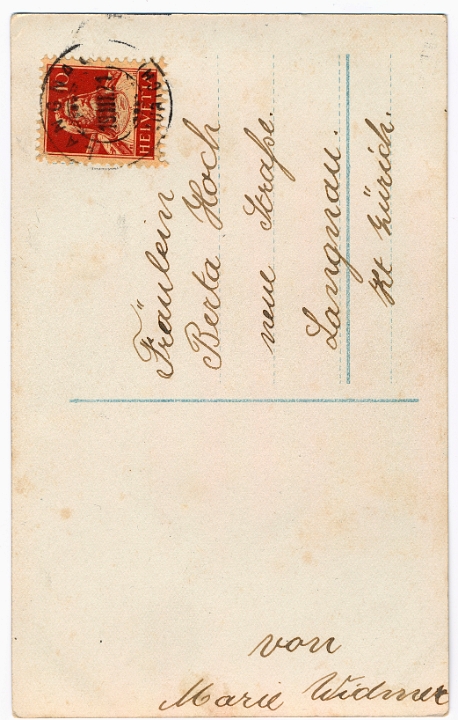 10
HELVETIA
Fräulein
Berta Hoch
neue Straße.
Langnau.
Kt Zürich.
von
Marie Widmer